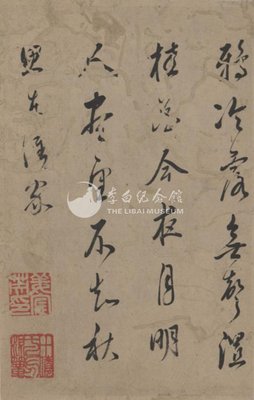 鴉冷露無聲溼
桂花今夜月明
人盡望不知秋
思在誰家
李白紀念館
THE LIBAI MUSEUM